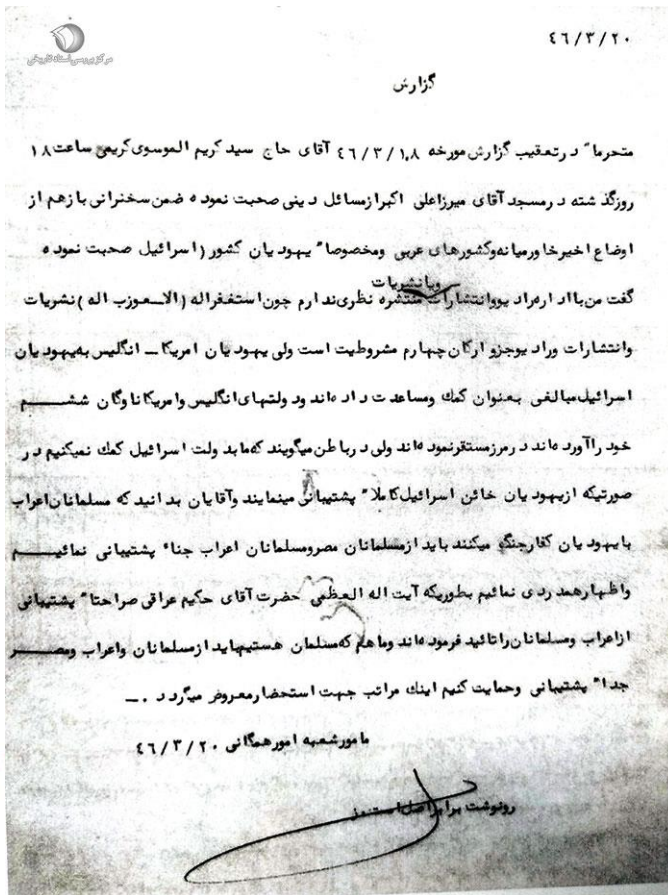 مرکز بررسی اسناد تاریخی
٤٦/٣/٢٠
گزارش
متحرما" در تعقیب گزارش مورخه ٤٦/٣/١٨ آقای حاج سید کریم الموسوی کریمی ساعت ١٨
روزگذشته در مسجد آقای میرزاعلی اکبر از مسائل دینی صحبت نموده ضمن سخنرانی بازهم از
اوضاع اخیر خاورمیانه وکشورهای عربی ومخصوصا" یهودیان کشور (اسرائیل صحبت نموده
ویانشریات
گفت من بااداره رادیووانتشارات منتشره نظری ندارم چون استغفراله (الاسعوزب اله) نشریات
وانتشارات ورادیوجزوارکان چهارم مشروطیت است ولی یهودیان امریکا ــ انگلیس به یهودیان
اسرائیل مبالغی بعنوان کمك ومساعدت داده اند ودولتهای انگلیس وامریکاناوگان ششم
خود راآورده اند درمرزمستقرنموده اند ولی درباطن میگویند که مابدولت اسرائیل کمك نمیکنیم در
صورتیکه ازیهودیان خائن اسرائیل کاملا" پشتیبانی مینمایند وآقایان بدانید که مسلمانان اعراب
بایهودیان کفارجنگ میکنند باید ازمسلمانان مصرومسلمانان اعراب جدا" پشتیبانی نمائیم
واظهارهمدردی نمائیم بطوریکه آیت اله العظمی حضرت آقای حکیم عراقی صراحتا" پشتیبانی
ازاعراب ومسلمانان راتائید فرموده اند وماهم که مسلمان هستیم باید ازمسلمانان واعراب ومصر
جدا" پشتیبانی وحمایت کنیم اینك مراتب جهت استحضارمعروض میگردد .ــ
مامورشعبه امورهمگانی ٤٦/٣/٢٠
رونوشت برابر اصل است